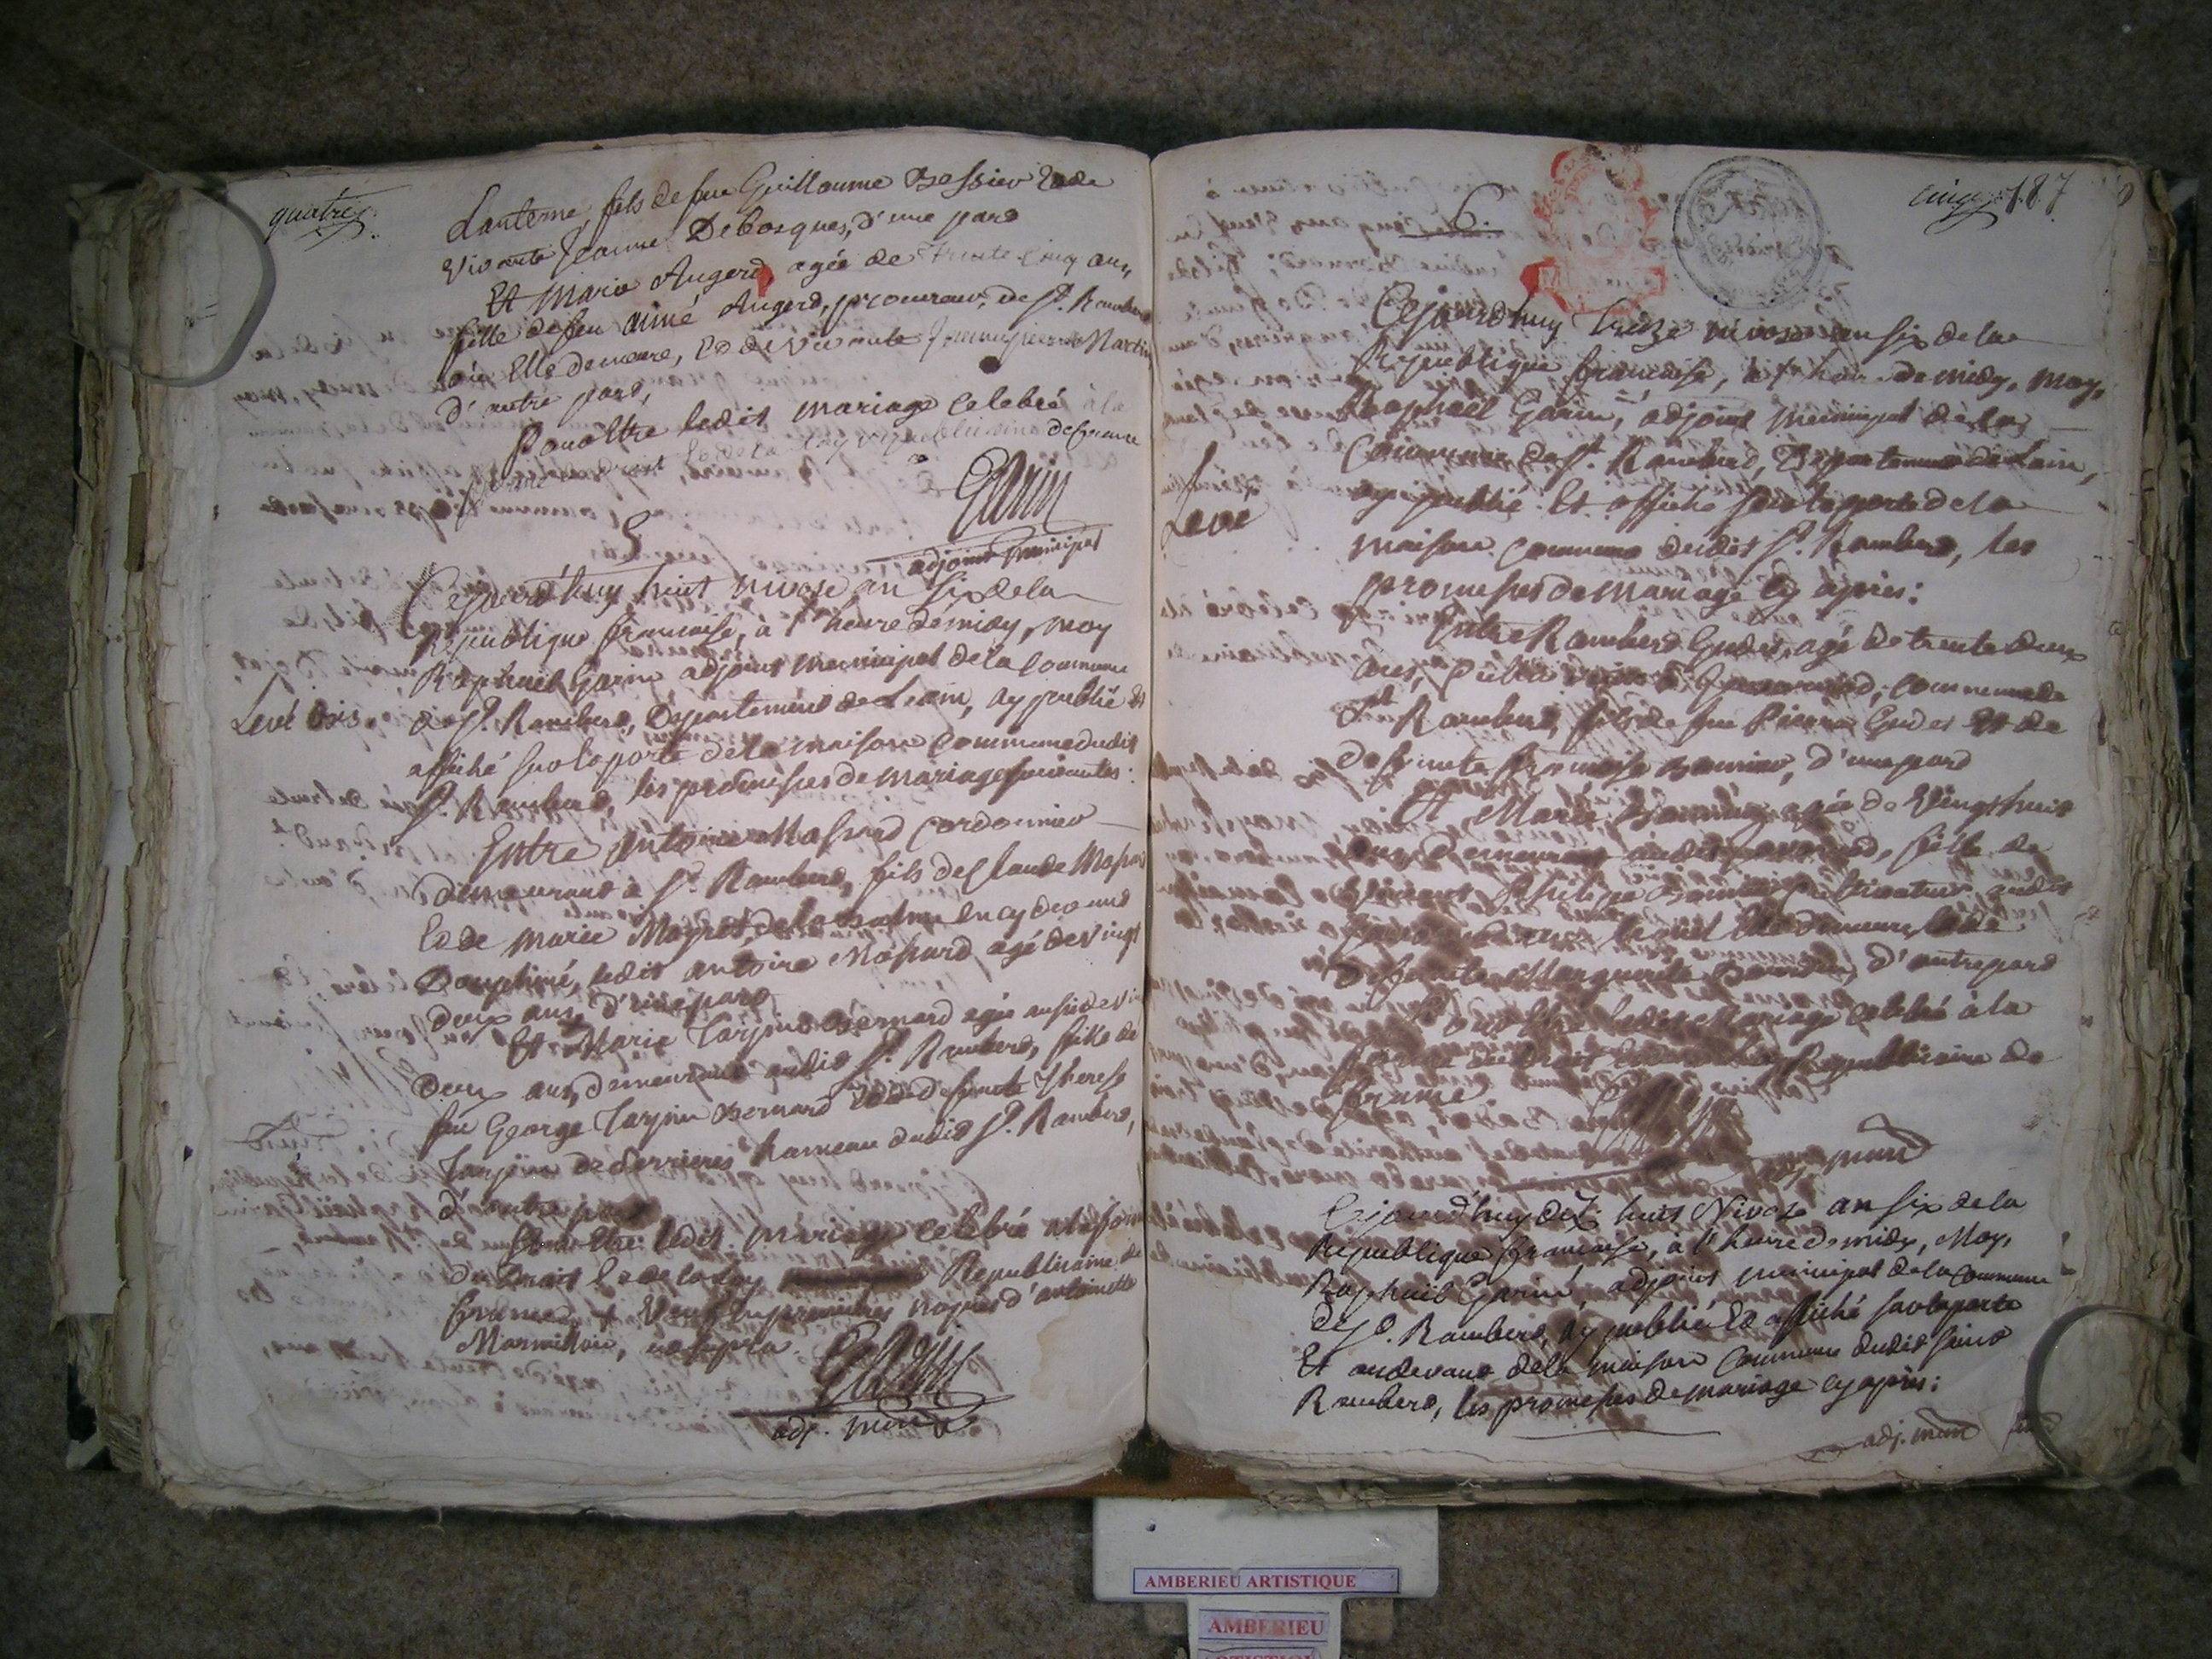 quatre
Lanterne fils de feu Guillaume Bessier Et de
vivante Jeanne Debosques, d'une pard
Et Marie Augerd agée de Trente cinq ans
fille de feu aimé Augerd, procureur de St. Ramberd
où Elle demeure, Et de vivante Jeanne pierrette Martin
d'autre pard,
Pour Etre ledit mariage Celebré à la
forme du droit Et de la loy republicaine de france
Garin
adjoint municipal
5
Cejourd'huy huit nivose an six de la
Republique francaise, à l'heure de midy, moy
Raphael Garin adjoint municipal de la Commune
de St. Ramberd, Departement de Lain, ay publié et
affiché sur la porte de la maison commune dudit
St. Ramberd, les promesses de mariage suivantes:
Levé
Entre Antoine Massard Cordonnier
demeurant à St. Ramberd, fils de Claude Massard
Et de Marie Mayret, de la Balme En cy devant
Dauphiné, ledit antoine Massard agé de vingt
deux ans, d'une pard
Et Marie Tarpin Bernard agée aussi de vingt
deux ans, demeurant audit St. Ramberd, fille de
feu George Tarpin Bernard Et de defunte Therese
Tarpin de Serrieres hameau dudit St. Ramberd,
d'autre pard
Pour Etre ledit mariage celebré a la forme
du Droit Et de la Loy Republicaine de
france + Veuf En premieres nopces d'antoinette
Marmillon, ut supra.
Garin
adj. mun
cinq 187
6.
Cejourd'huy Treize nivose an six de la
Republique francaise, à l'heure de midy, moy,
Raphael Garin, adjoint municipal de la
Commune de St. Ramberd, Departement de Lain,
ay publié Et affiché sur la porte de la
maison commune dudit St. Ramberd, les
promesses de mariage cy après:
Levé
Entre Ramberd Gudet, agé de trente deux
ans, commune de
St. Ramberd, fils de feu Pierre Gudet Et de
defunte francoise Bonnino, d'une pard
Et Marie agée de Vingt huit
ans, demeurant fille de
vivant Philipe Cultivateur audit
lequel Elle demeure, Et de
defunte Marguerite d'autre pard
Pour Etre ledit Mariage Celebré à la
forme du Droit Et de la Loy Republicaine de
france
Garin
adj. mun
Cejourd'huy dix huit Nivose an six de la
Republique francaise, à l'heure de midy, Moy,
Raphael Garin, adjoint municipal de la Commune
de St. Ramberd, ay publié Et affiché sur la porte
Et au devant de la maison Commune dudit saint
Ramberd, les promesses de mariage cy après:
adj. mun
AMBERIEU ARTISTIQUE
AMBERIEU
ARTISTIQUE